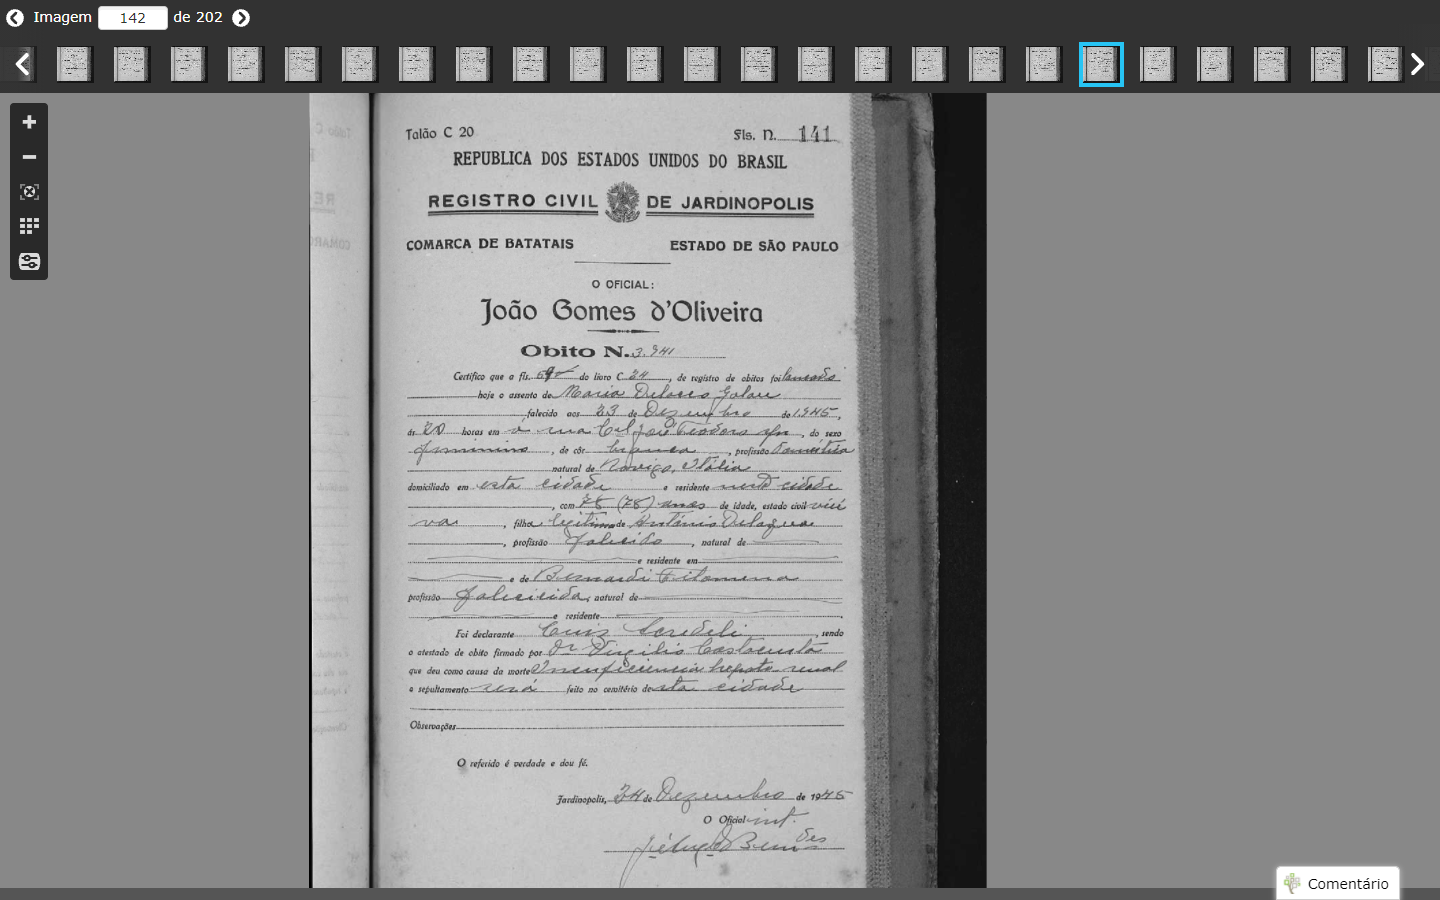 Imagem 142 de 202
Talão C 20 Fls. N. 141
REPUBLICA DOS ESTADOS UNIDOS DO BRASIL
REGISTRO CIVIL DE JARDINOPOLIS
COMARCA DE BATATAIS ESTADO DE SÃO PAULO
O OFICIAL:
João Gomes d'Oliveira
Obito N. 3.941
Certifico que a fls. do livro C 24, de registro de obitos foi lançado
hoje o assento de Maria
falecido aos 23 de Dezembro de 1945,
ás 20 horas em á rua Cel José Teodoro s/n, do sexo
feminino, de côr branca, profissão domestica
natural de Rovigo, Itália
domiciliado em esta cidade e residente nesta cidade
, com 78 (78) anos de idade, estado civil viú
va, filha legitima de Antônio
, profissão falecido, natural de
e residente em
e de Bernardi Filomena
profissão falecida, natural de
e residente
Foi declarante Luiz, sendo
o atestado de obito firmado por Dr Virgilio
que deu como causa da morte Insuficiencia hepato renal
o sepultamento será feito no cemitério desta cidade
Observações
O referido é verdade e dou fé.
Jardinopolis, 24 de Dezembro de 1945
O Oficial int.
Comentário